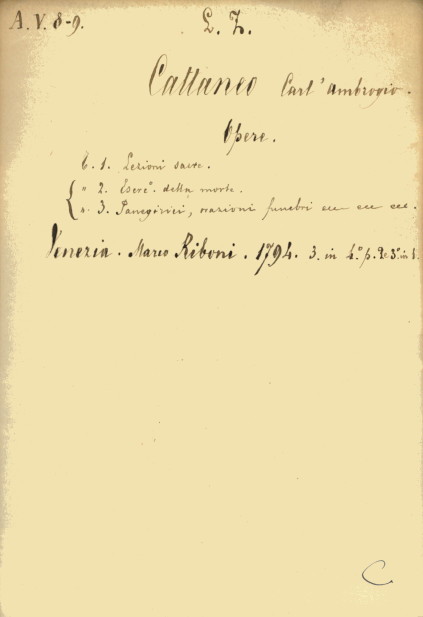 A. V. 8-9.
L. Z.
Cattaneo Carl' ambrogio.
Opere.
t. 1. Lezioni sacre.
" 2. Eserc°. della morte.
". 3. Panegirici, orazioni funebri ecc ecc ecc.
Venezia. Marco Riboni. 1794. 3. in 4.° p. 2e 3° in
C